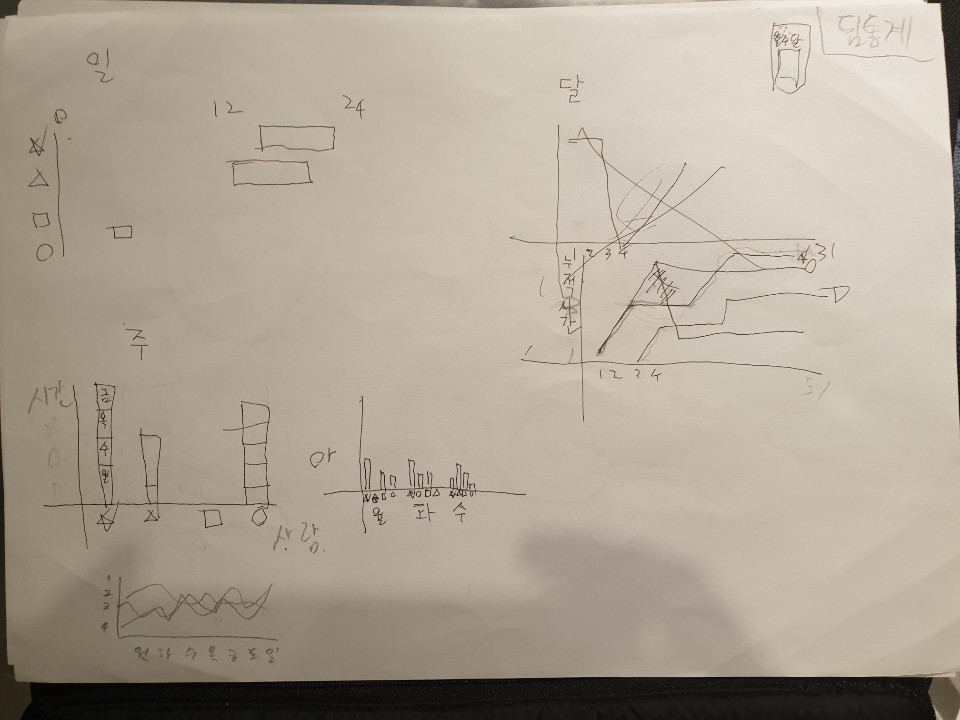 팀통계
일주달
일
12 24
달
2 3 4 31
누
적
시
간
1 2 3 4
31
주
시간
금
목
수
월
사람
월 화 수
1
2
3
4
월 화 수 목 금 토 일